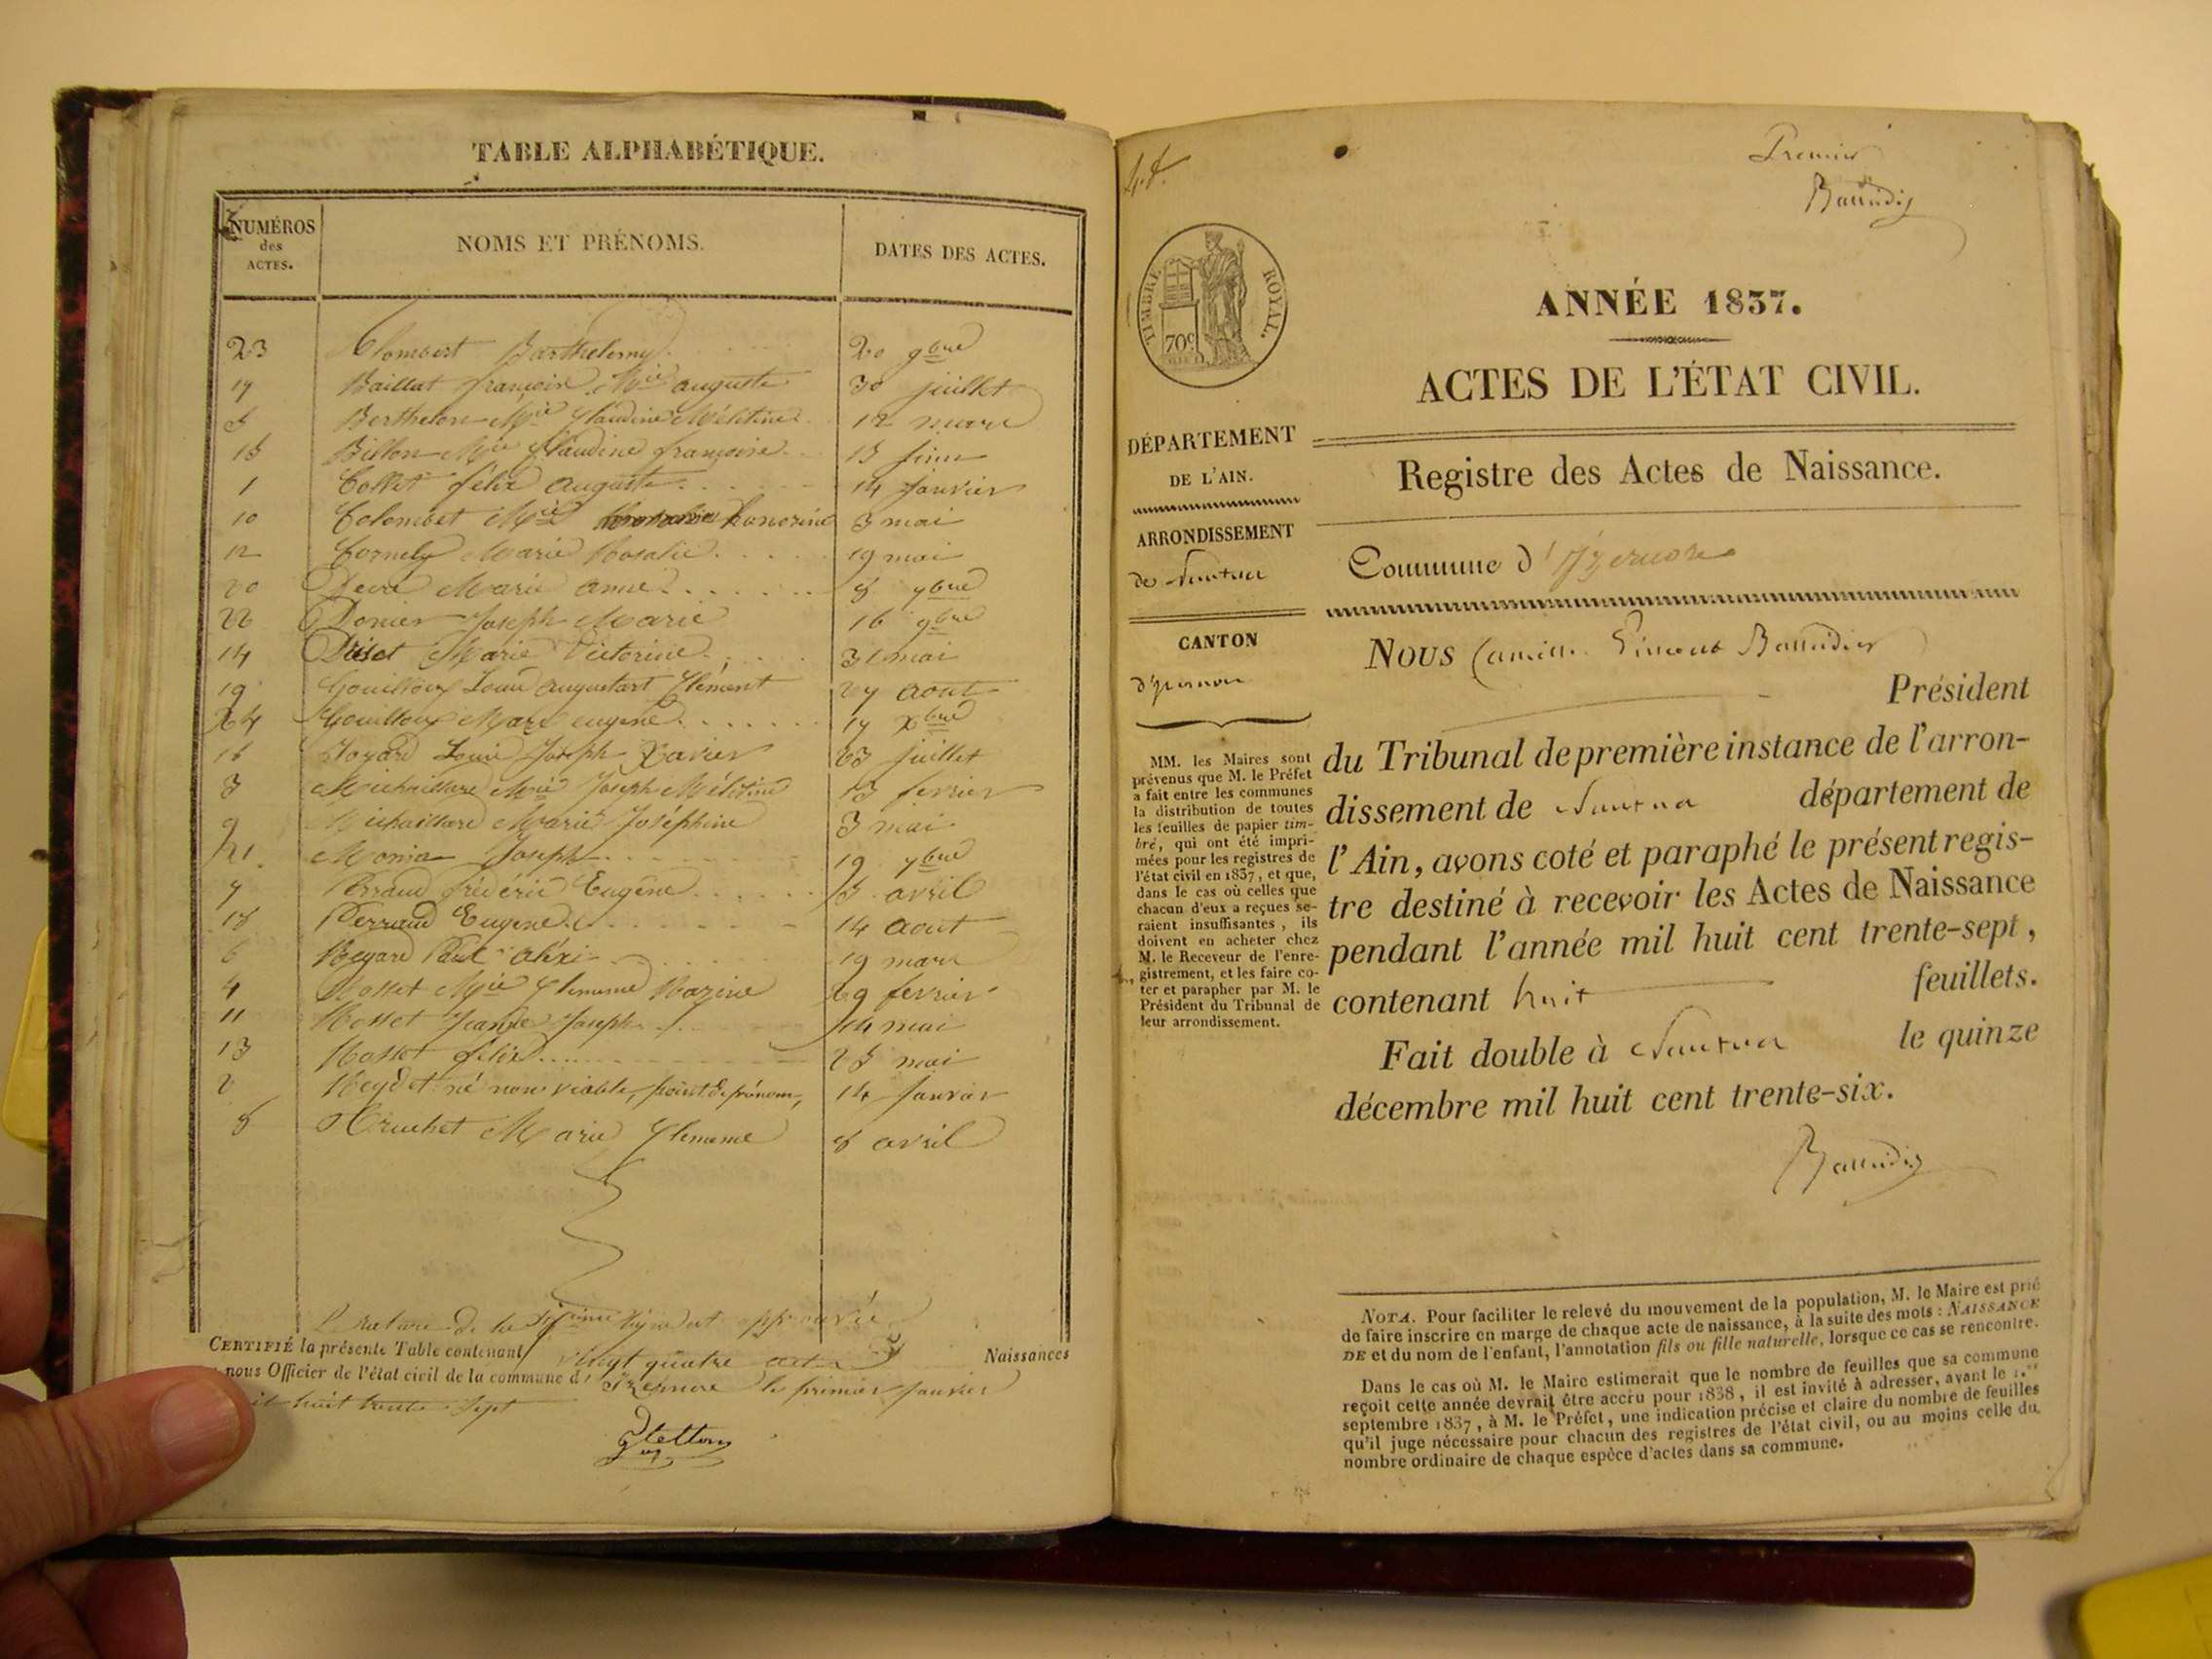 TABLE ALPHABÉTIQUE.
NUMÉROS
des
ACTES.
NOMS ET PRÉNOMS.
DATES DES ACTES.
23 Barthelemy 20 9bre
17 Baillat françois Mie auguste 30 juillet
5 Berthelon Mie Claudine Mélitine 12 mars
15 Billon Mie Claudine françoise 13 juin
1 Collet félix auguste 14 Janvier
10 Colombet Mie honorine 3 mai
12 Cornely Marie Rosalie 19 mai
20 Marie anne 8 7bre
22 Donier Joseph Marie 16 9bre
14 Marie Victorine 31 mai
19 Gouilloux Louis Clément 27 aout
24 Gouilloux Marc eugène 17 Xbre
16 Joyard Louis Joseph Xavier 23 juillet
3 Michaillard Mie Joseph Mélitine 13 fevrier
9 Michaillard Marie Joséphine 3 mai
21 Monia Joseph 19 7bre
7 Perraud frédéric Eugène avril
18 Perraud Eugène 14 aout
6 Regard Paul alexi 19 mars
4 Rosset Mie Clemence fevrier
11 Rosset Jeanne Joseph 14 mai
13 Rosset félix 25 mai
2 Reydet né non viable, point de prénom, 14 Janvier
8 Truchet Marie Clemence 8 avril
La rature de la ligne est approuvée
CERTIFIÉ la présente Table contenant vingt quatre actes Naissances
nous Officier de l'état civil de la commune d'Izernore le premier Janvier
huit trente sept
Premier
Baudin
TIMBRE ROYAL.
70c
ANNÉE 1837.
ACTES DE L'ÉTAT CIVIL.
DÉPARTEMENT
DE L'AIN.
ARRONDISSEMENT
de Nantua
CANTON
d'Izernore
Registre des Actes de Naissance.
Commune d'Izernore
NOUS Camille Vincent
Président
du Tribunal de première instance de l'arron-
dissement de Nantua département de
l'Ain, avons coté et paraphé le présent regis-
tre destiné à recevoir les Actes de Naissance
pendant l'année mil huit cent trente-sept,
contenant huit feuillets.
Fait double à Nantua le quinze
décembre mil huit cent trente-six.
MM. les Maires sont
prévenus que M. le Préfet
a fait entre les communes
la distribution de toutes
les feuilles de papier tim-
bré, qui ont été impri-
mées pour les registres de
l'état civil en 1837, et que,
dans le cas où celles que
chacun d'eux a reçues se-
raient insuffisantes, ils
doivent en acheter chez
M. le Receveur de l'enre-
gistrement, et les faire co-
ter et parapher par M. le
Président du Tribunal de
leur arrondissement.
NOTA. Pour faciliter le relevé du mouvement de la population, M. le Maire est prié
de faire inscrire en marge de chaque acte de naissance, à la suite des mots : NAISSANCE
DE et du nom de l'enfant, l'annotation fils ou fille naturelle, lorsque ce cas se rencontre.
Dans le cas où M. le Maire estimerait que le nombre de feuilles que sa commune
reçoit cette année devrait être accru pour 1838, il est invité à adresser, avant le 1.er
septembre 1837, à M. le Préfet, une indication précise et claire du nombre de feuilles
qu'il juge nécessaire pour chacun des registres de l'état civil, ou au moins celle du
nombre ordinaire de chaque espèce d'actes dans sa commune.